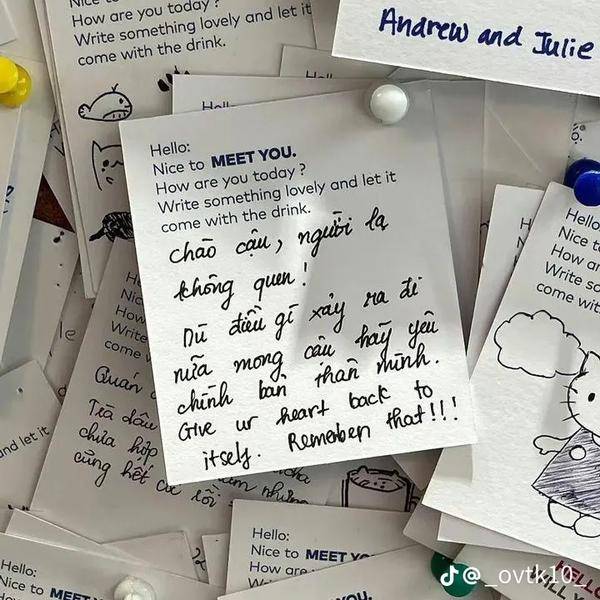 Nice to
How are you today ?
Write something lovely and let it
come with the drink.
Andrew and Julie
Hello:
Nice to MEET YOU.
How are you today ?
Write something lovely and let it
come with the drink.
chào cậu, người lạ
không quen !
Dù điều gì xảy ra đi
nữa mong cậu hãy yêu
chính bản thân mình.
Give ur heart back to
itself. Remember that!!!
Hello:
Hello:
How
Write
come
Quán
Trà dâu
chưa hợp
cũng hết
nd let it
Hello:
Nice to
How ar
Write so
come wit
Hello:
Nice to MEET YO
How are
Hello:
Nice to MEET
@_ovtk10_